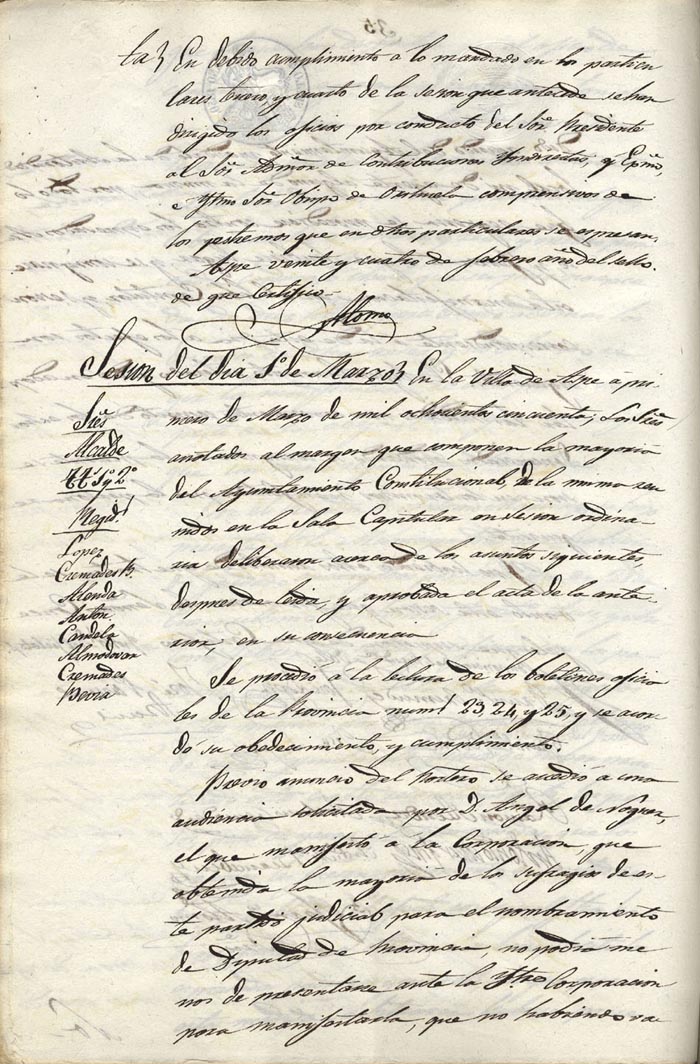 En debido cumplimiento a lo mandado en los particu
lares tercero, y cuarto de la sesion que antecede se han
dirigido los oficios por conducto del Sor. Presidente
al Sor. Admor de Contribuciones Indirectas, y Exmo,
e Ytmo Sor. Obispo de Orihuela comprensivos de
los estremos que en dhos particulares se espresan.
Aspe veinte y cuatro de febrero año del sello.
de que Certifico
Sesion del dia 1º de Marzo } En la Villa de Aspe á pri
mero de Marzo de mil ochocientos cincuenta; Los Sres
anotados al margen que componen la mayoria
del Ayuntamiento Constitucional, de la misma reu
nidos en la Sala Capitular en sesion ordina-
ria deliberaron acerca de los asuntos siguientes,
despues de leida, y aprobada el acta de la ante-
rior; en su consecuencia
Sres
Alcalde
TT. 1º y 2º
Regid.s
Lopez
Cremades B.
Alenda
Anton.
Candela
Almodovar
Cremades
Bevia
Se procedió á la lectura de los boletines oficia
les de la Provincia num.s 23, 24, y 25, y se acor
dó su obedecimiento, y cumplimiento.
Previo anuncio del Portero se accedió a una
audiencia solicitada por D. Angel de
el que manifestó á la Corporacion, que
obtenida la mayoria de los sufragios de es-
te partido judicial para el nombramiento
de Diputad de Provincia, no podia me
nos de presentarse ante la Ytre Corporacion
para manifestarla, que no habiendo va